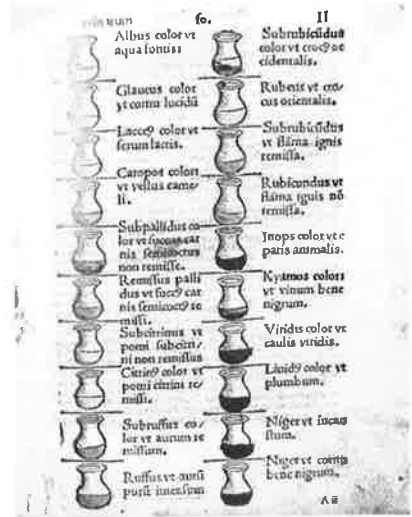 fo. II
Albus color vt
aqua fontis
Glaucus color
vt cornu lucidū
Lacteꝰ color vt
serum lactis.
Caropos color
vt vellus came/
li.
Subpallidus co
lor vt succus car
nis semicoctus
non remisse.
Remissus palli
dus vt succꝰ car
nis semicoctꝰ re
missi.
Subcitrinus vt
pomi subcitri/
ni non remissus
Citrinꝰ color vt
pomi citrini re/
missi.
Subruffus co/
lor vt aurum re
missum.
Ruffus vt auri
puri intensum
Subrubicūdus
color vt crocꝰ oc
cidentalis.
Rubens vt cro/
cus orientalis.
Subrubicūdus
vt flāma ignis
remissa.
Rubicundus vt
flāma ignis nō
remissa.
Inops color vt e
patis animalis.
Kyamos colors
vt vinum bene
nigrum.
Viridis color vt
caulis viridis.
Liuidꝰ color vt
plumbum.
Niger vt incau
stum.
Niger vt cornu
bene nigrum.